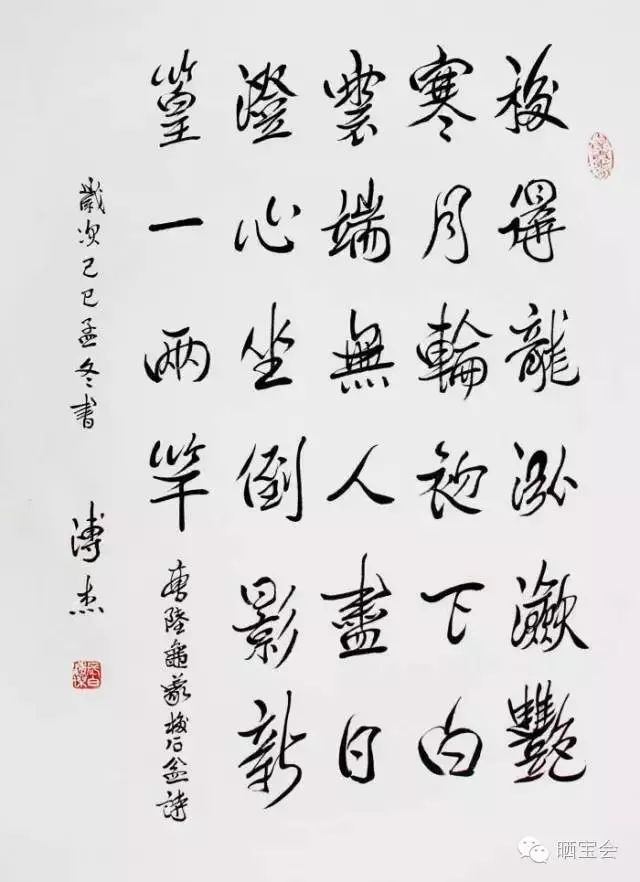 移得龍泓瀲艷
寒月輪初下白
雲端無人盡日
澄心坐倒影新
篁一兩竿
唐陸龜蒙移石盆詩
歲次己巳孟冬書 溥杰
晒宝会